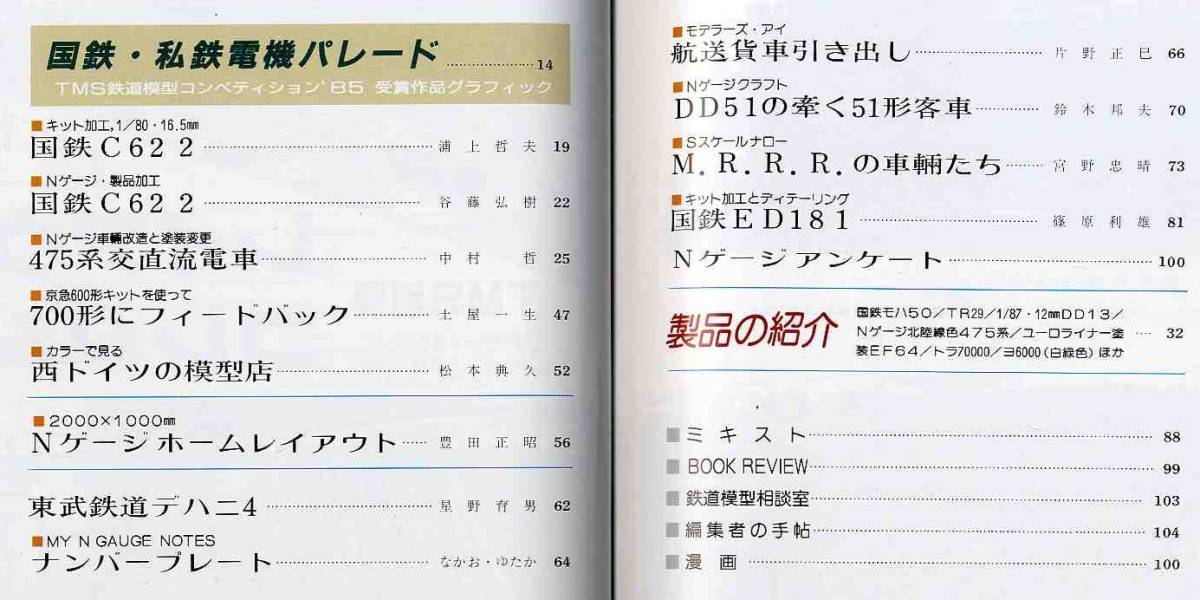 国鉄・私鉄電機パレード 14
TMS鉄道模型コンペティション'85 受賞作品グラフィック
■キット加工,1/80・16.5㎜
国鉄C62 2 浦上哲夫 19
■Nゲージ・製品加工
国鉄C62 2 谷藤弘樹 22
■Nゲージ車輛改造と塗装変更
475系交直流電車 中村 哲 25
■京急600形キットを使って
700形にフィードバック 土屋一生 47
■カラーで見る
西ドイツの模型店 松本典久 52
■2000×1000㎜
Nゲージホームレイアウト 豊田正昭 56
東武鉄道デハニ4 星野育男 62
■MY N GAUGE NOTES
ナンバープレート なかお・ゆたか 64
■モデラーズ・アイ
航送貨車引き出し 片野正巳 66
■Nゲージクラフト
DD51の牽く51形客車 鈴木邦夫 70
■Sスケールナロー
M.R.R.R.の車輛たち 宮野忠晴 73
■キット加工とディテーリング
国鉄ED18 1 篠原利雄 81
Nゲージアンケート 100
製品の紹介 32
国鉄モハ50/TR29/1/87・12㎜DD13/
Nゲージ北陸線色475系/ユーロライナー塗
装EF64/トラ70000/ヨ6000(白緑色)ほか
■ミキスト 88
■BOOK REVIEW 99
■鉄道模型相談室 103
■編集者の手帖 104
■漫画 100